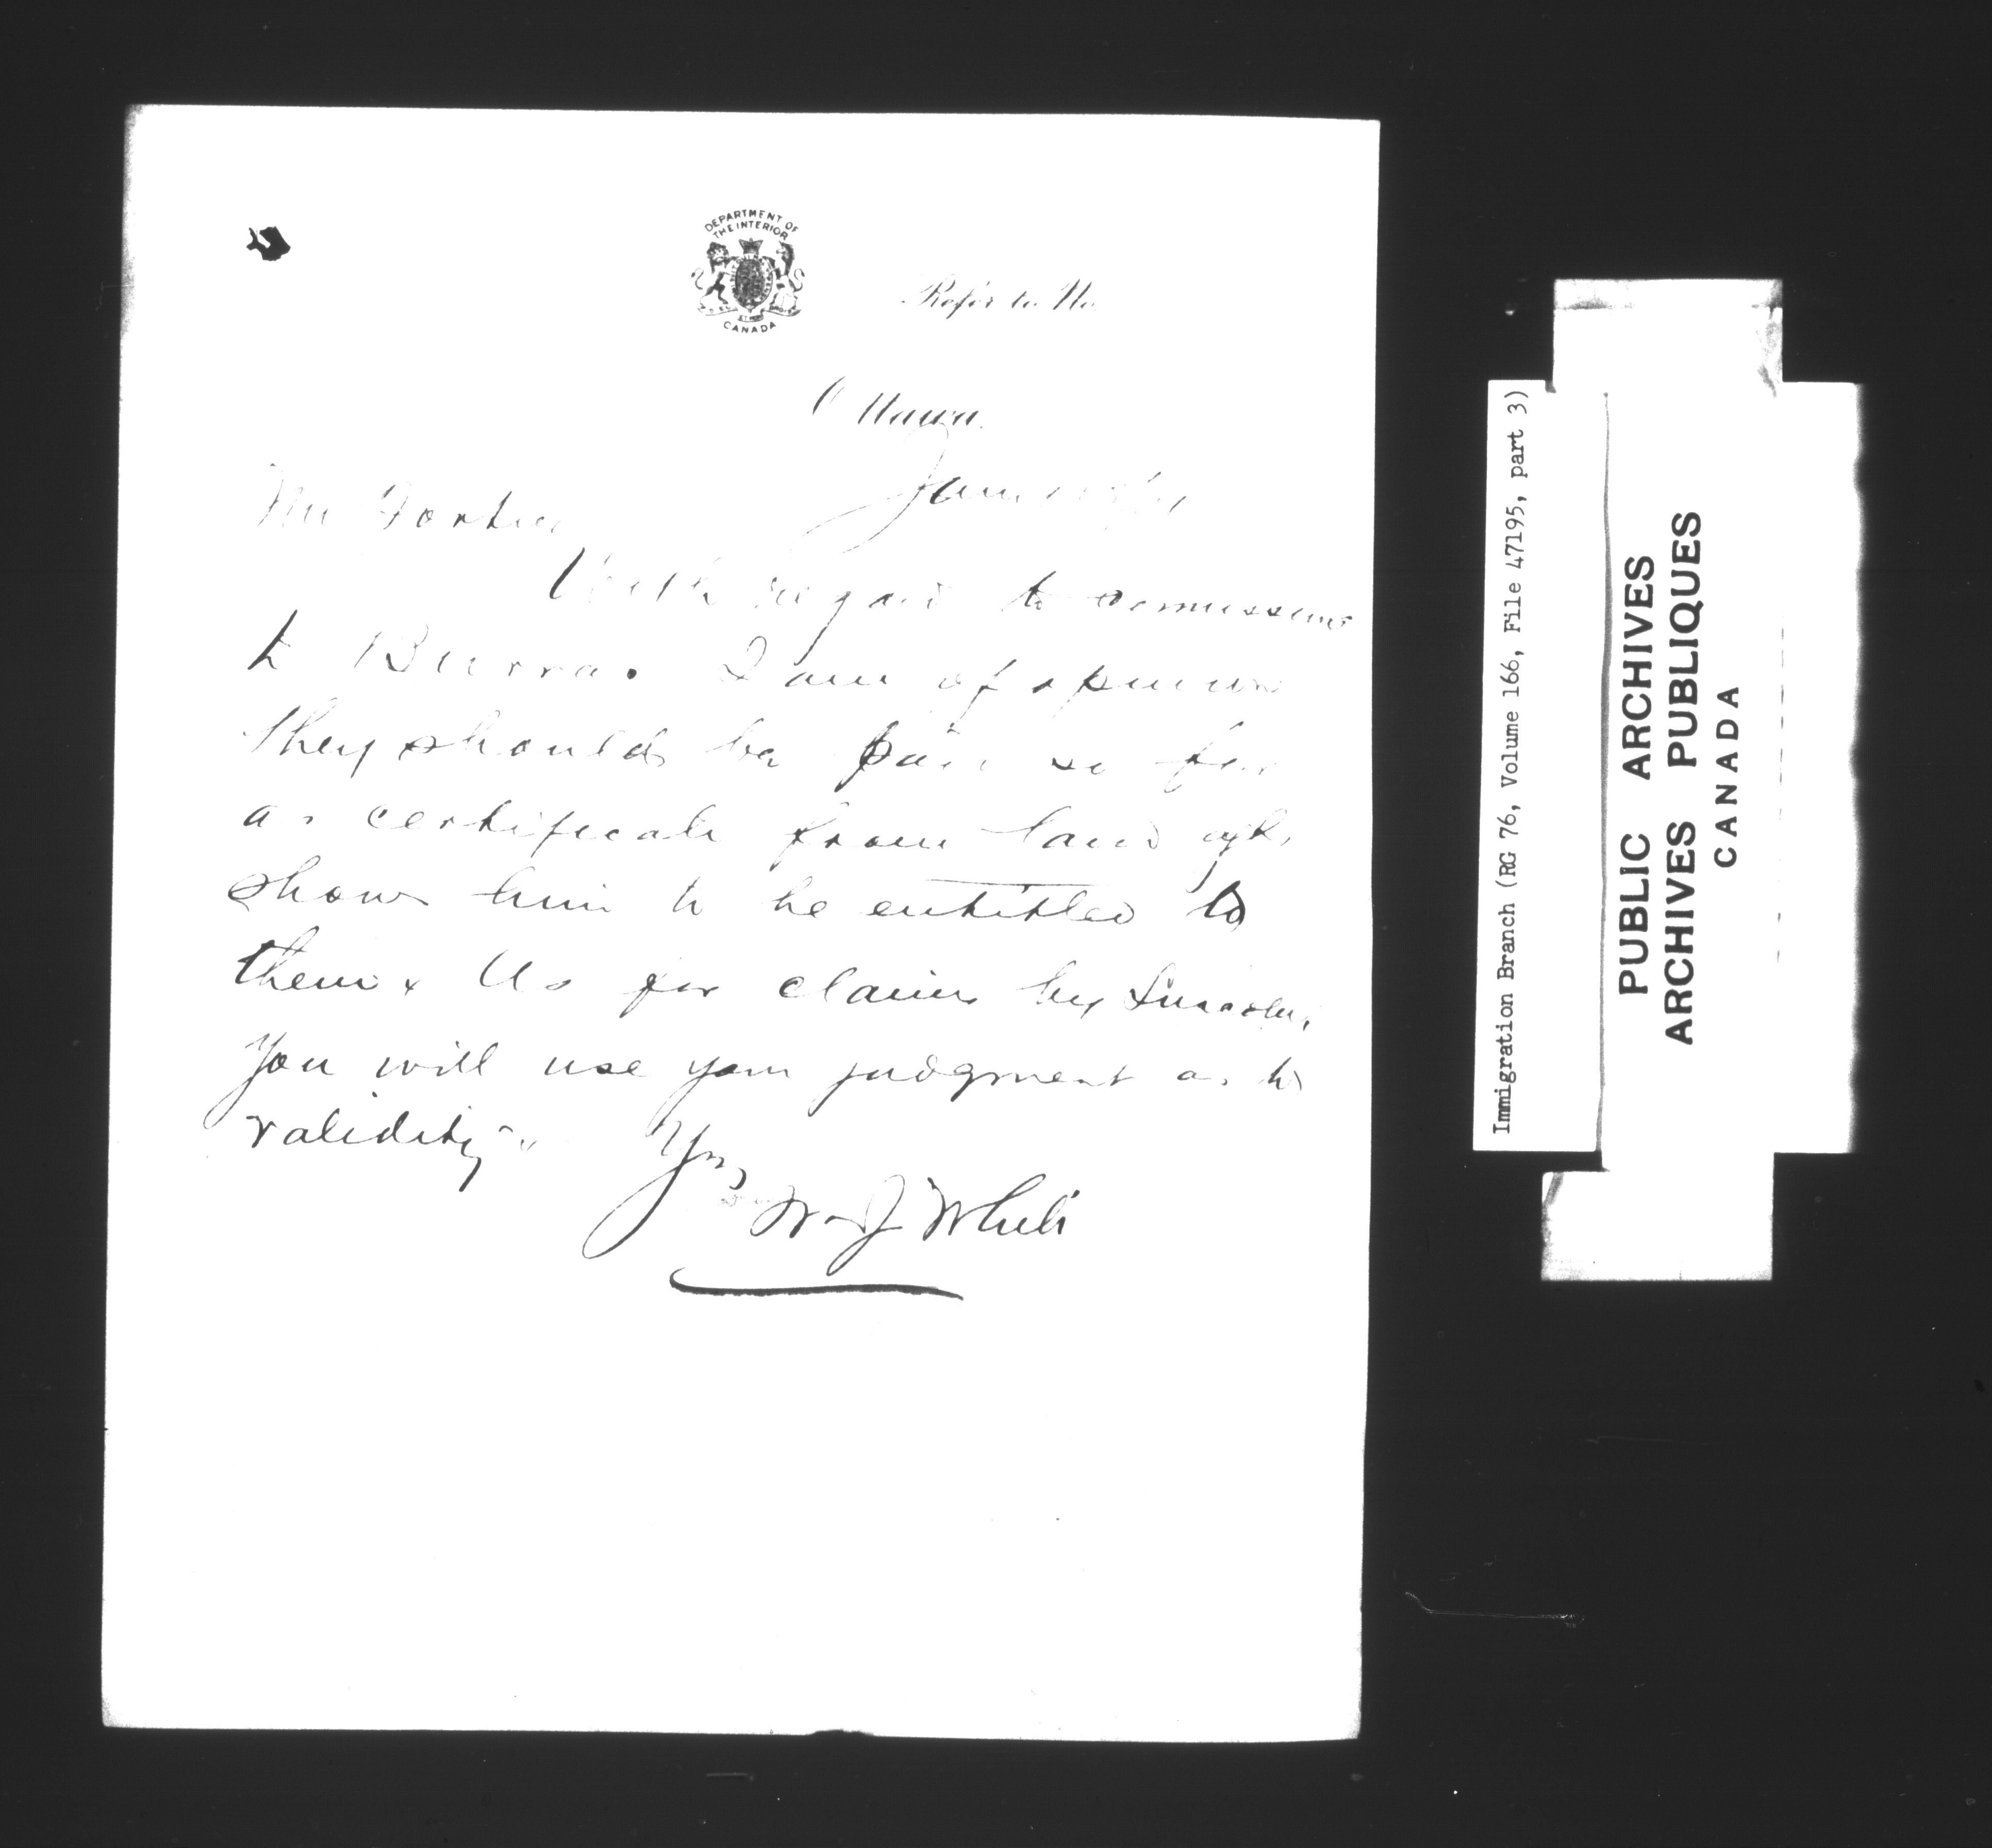 DEPARTMENT OF
THE INTERIOR
CANADA
Refer to No.
Ottawa
Mr Fortier
With regard to commissions
to Burra. I am of opinion
they should be paid so far
as certificate from land
show him to be entitled to
them. As for claim by
You will use your judgment as to
validity.
Yrs
W J White
Immigration Branch (RG 76, Volume 166, File 47195, part 3)
PUBLIC ARCHIVES
ARCHIVES PUBLIQUES
CANADA